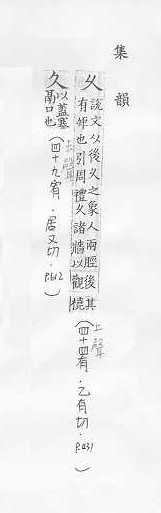 集韻
久
說文以後久之象人兩脛後其
有距也引周禮久諸牆以觀橈
上聲
(四十四有．乙有切．P.431)
久
以蓋塞
鬲口也
(四十九宥．居又切．P.612)